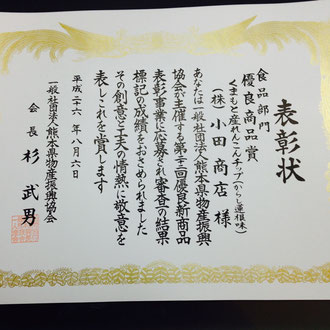 表彰状
食品部門
優良商品賞
くまもと産れんこんチップ(からし蓮根味)
(株)小田商店様
あなたは一般社団法人熊本県物産振興
協会が主催する第二十二回優良新商品
表彰事業に応募され審査の結果
標記の成績をおさめられました
その創意と工夫の情熱に敬意を
表しこれを賞します
平成二十六年八月六日
一般社団法人熊本県物産振興協会
会長 杉武男